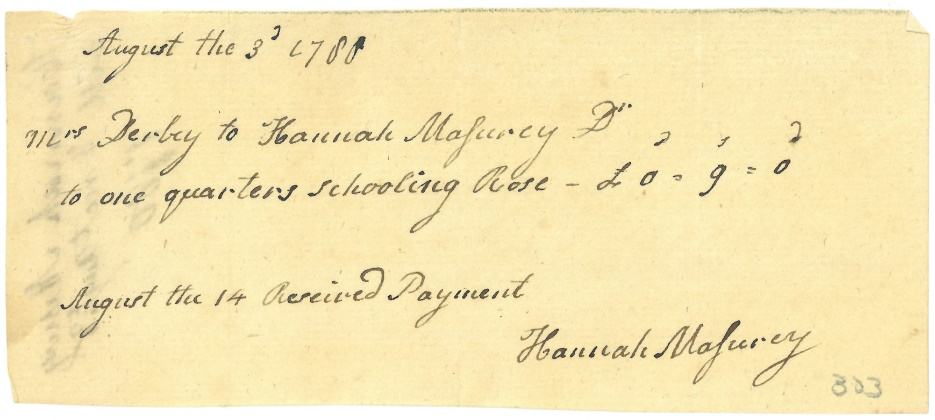 August the 3d 1788
Mrs Derbey to Hannah Masurey Dr
to one quarters schooling Rose - £ 0 = 9 = 0
August the 14 Received Payment
Hannah Masurey
303